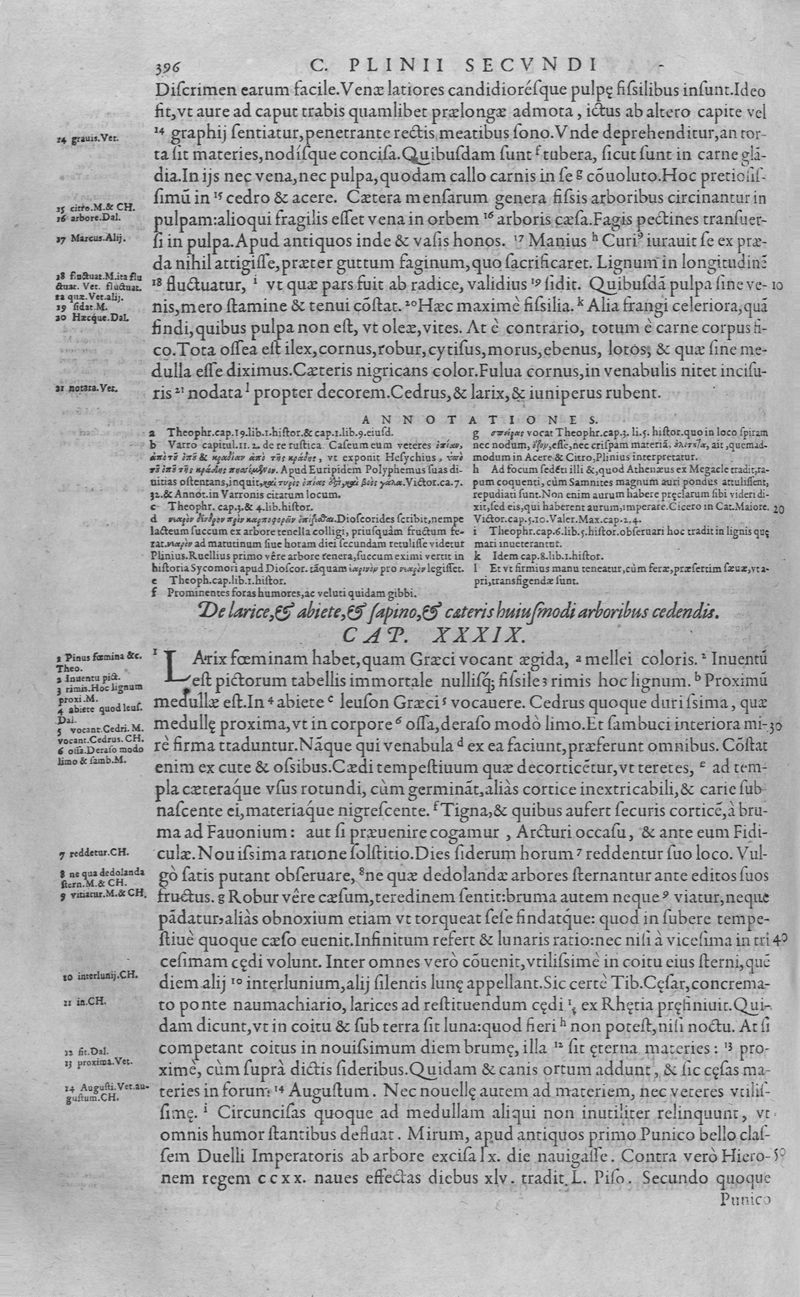 396 C. PLINII SECVNDI
Diſcrimen earum facile.Venæ latiores candidioréſque pulpę fiſsilibus inſunt.Ideo
fit,vt aure ad caput trabis quamlibet prælongæ admota , ictus ab altero capite vel
14 grauis.Vet.
¹⁴ graphij ſentiatur,penetrante rectis meatibus ſono.Vnde deprehenditur,an tor-
ta ſit materies,nodíſque conciſa.Quibuſdam ſunt ᶠ tubera, ſicut ſunt in carne glã-
dia.In ijs nec vena,nec pulpa,quodam callo carnis in ſe ᵍ cõuoluto.Hoc pretioſiſ-
15 citro.M.& CH.
ſimũ in ¹⁵ cedro & acere. Cætera menſarum genera fiſsis arboribus circinantur in
16 arbore.Dal.
pulpam:alioqui fragilis eſſet vena in orbem ¹⁶ arboris cæſa.Fagis pectines tranſuer-
17 Marcus.Alij.
ſi in pulpa.Apud antiquos inde & vaſis honos. ¹⁷ Manius ʰ Curiꝰ iurauit ſe ex præ-
da nihil attigiſſe,præter guttum faginum,quo ſacrificaret. Lignum in longitudinẽ
18 fluctuat.M.ita flu
ctuat. Vet. fluctuãt.
12 quæ.Vet.alij.
19 ſidat.M.
20 Hæcque.Dal.
¹⁸ fluctuatur, ⁱ vt quæ pars fuit ab radice, validius ¹⁹ ſidit. Quibuſdã pulpa ſine ve- 10
nis,mero ſtamine & tenui cõſtat.²⁰Hæc maximè fiſsilia.ᵏ Alia frangi celeriora,quã
findi,quibus pulpa non eſt, vt oleæ,vites. At è contrario, totum è carne corpus fi-
co.Tota oſſea eſt ilex,cornus,robur,cytiſus,morus,ebenus, lotos, & quæ ſine me-
dulla eſſe diximus.Cæteris nigricans color.Fulua cornus,in venabulis nitet inciſu-
21 notata.Vet.
ris ²¹ nodata ˡ propter decorem.Cedrus,& larix,& iuniperus rubent.
ANNOTATIONES.
a Theophr.cap.19.lib.1.hiſtor.& cap.1.lib.9.eiuſd.
b Varro capitul.11. 2. de re ruſtica Caſeum eum veteres
& vt exponit Heſychius ,
Apud Euripidem Polyphemus ſuas di-
uitias oſtentans,inquit, Victor.ca.7.
32.& Annot.in Varronis citatum locum.
c Theophr. cap.4.& 4.lib.hiſtor.
d Dioſcorides ſcribit,nempe
lacteum ſuccum ex arbore tenella colligi, priuſquàm fructum fe-
rat. ad matutinum ſiue horam diei ſecundam retuliſſe videtur
Plinius.Ruellius primo vêre arbore tenera,ſuccum eximi vertit in
hiſtoria Sycomori apud Dioſcor. tãquam pro legiſſet.
e Theoph.cap.lib.1.hiſtor.
f Prominentes foras humores,ac veluti quidam gibbi.
g vocat Theophr.cap.3. li.5. hiſtor.quo in loco ſpiram
nec nodum, eſſe,nec criſpam materiã. ait ,quemad-
modum in Acere & Citro,Plinius interpretatur.
h Ad focum ſedẽti illi &,quod Athenæus ex Megacle tradit,ra-
pum coquenti, cùm Samnites magnum auri pondus attuliſſent,
repudiati ſunt.Non enim aurum habere pręclarum ſibi videri di-
xit,ſed eis,qui haberent aurum,imperare.Cicero in Cat.Maiore. 20
Victor.cap.5.10.Valer.Max.cap.2.4.
i Theophr.cap.6.lib.5.hiſtor.obſeruari hoc tradit in lignis quę
mari inueterantur.
k Idem cap.8.lib.1.hiſtor.
l Et vt firmius manu teneatur,cùm feræ,præſertim ſæuæ,vt a-
pri,transfigendæ ſunt.
De larice,& abiete,& ſapino,& cæteris huiuſmodi arboribus cedendis.
CAP. XXXIX.
1 Pinus fœmina &c.
Theo.
2 Inuentu pict.
3 rimis.Hoc lignum
proxi.M.
4 abiete quod leuſ.
Dal.
5 vocant.Cedri. M.
vocant.Cedrus. CH.
6 oſſa.Deraſo modo
limo & ſamb.M.
¹ LArix fœminam habet,quam Græci vocant ægida, ᵃ mellei coloris. ² Inuentũ
eſt pictorum tabellis immortale nulliſq; fiſsile ³ rimis hoc lignum. ᵇ Proximũ
medullæ eſt.In ⁴ abiete ᶜ leuſon Græci ⁵ vocauere. Cedrus quoque duriſsima, quæ
medullę proxima,vt in corpore ⁶ oſſa,deraſo modò limo.Et ſambuci interiora mi- 30
rè firma traduntur.Nãque qui venabula ᵈ ex ea faciunt,præferunt omnibus. Cõſtat
enim ex cute & oſsibus.Cædi tempeſtiuum quæ decorticẽtur,vt teretes, ᵉ ad tem-
pla cæteraque vſus rotundi, cùm germinãt,aliàs cortice inextricabili,& carie ſub
naſcente ei,materiaque nigreſcente. ᶠTigna,& quibus aufert ſecuris corticẽ,à bru-
ma ad Fauonium : aut ſi præuenire cogamur , Arcturi occaſu, & ante eum Fidi-
7 reddetur.CH.
culæ.Nouiſsima ratione ſolſtitio.Dies ſiderum horum ⁷ reddentur ſuo loco. Vul-
8 ne qua dedolanda
ſtern.M.& CH.
gò ſatis putant obſeruare, ⁸ne quæ dedolandæ arbores ſternantur ante editos ſuos
9 vitiatur.M.& CH.
fructus. g Robur vêre cæſum,teredinem ſentit:bruma autem neque ⁹ viatur,neque
pãdatur,aliàs obnoxium etiam vt torqueat ſeſe findatque: quod in ſubere tempe-
ſtiuè quoque cæſo euenit.Infinitum refert & lunaris ratio:nec niſi à viceſima in tri 40
ceſimam cędi volunt. Inter omnes verò cõuenit,vtiliſsimè in coitu eius ſterni,quẽ
10 interlunij.CH.
diem alij ¹⁰ interlunium,alij ſilentis lunę appellant.Sic certè Tib.Cęſar,concrema-
11 in.CH.
to ponte naumachiario, larices ad reſtituendum cędi ex Rhętia pręfiniuit.Qui-
dam dicunt,vt in coitu & ſub terra ſit luna:quod fieri ʰ non poteſt,niſi noctu. At ſi
12 fit.Dal.
competant coitus in nouiſsimum diem brumę, illa ¹² fit ęterna materies : ¹³ pro-
13 proxima.Vet.
ximè, cùm ſuprà dictis ſideribus.Quidam & canis ortum addunt , & ſic cęſas ma-
14 Auguſti.Vet.au-
guſtum.CH.
teries in forum ¹⁴ Auguſtum . Nec nouellę autem ad materiem, nec veteres vtiliſ-
ſimę. ⁱ Circunciſas quoque ad medullam aliqui non inutiliter relinquunt, vt
omnis humor ſtantibus defluat . Mirum, apud antiquos primo Punico bello claſ-
ſem Duelli Imperatoris ab arbore exciſa lx. die nauigaſſe . Contra verò Hiero- 50
nem regem ccxx. naues effectas diebus xlv. tradit L. Piſo. Secundo quoque
Punico